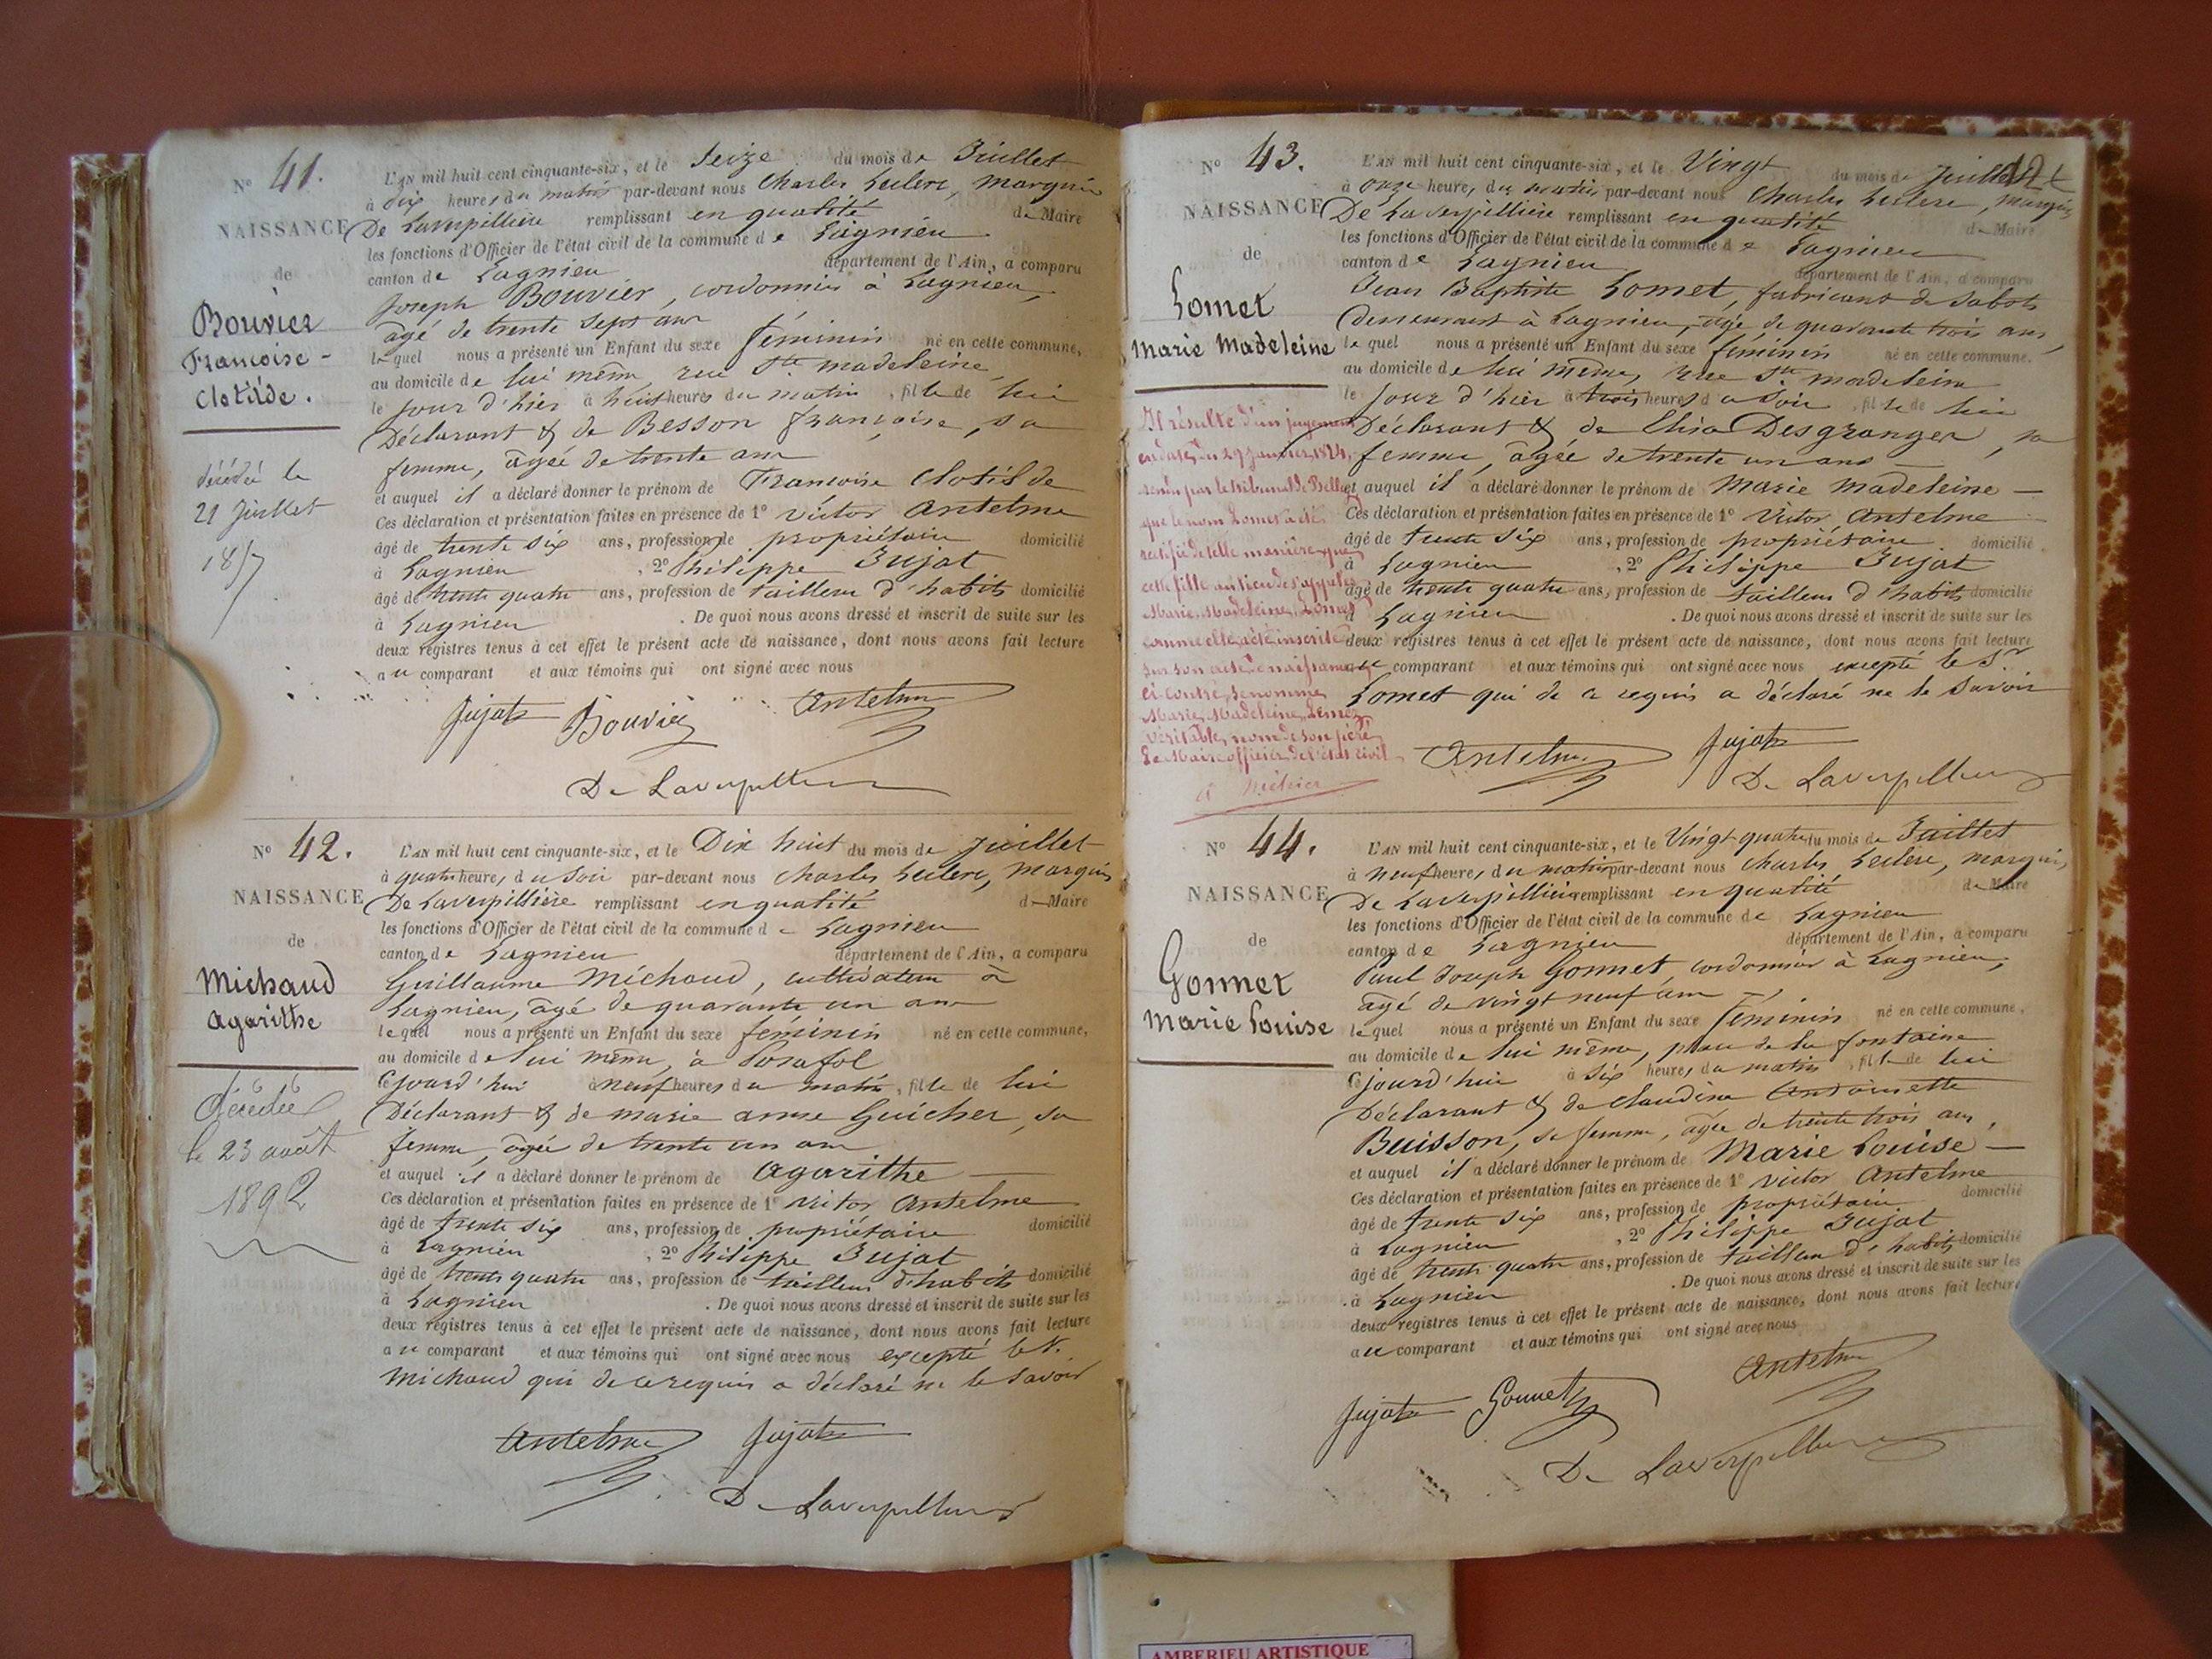 N° 41.
NAISSANCE
de
Bouvier
Françoise -
Clotilde.
décédée le
21 Juillet
1857
L'AN mil huit cent cinquante-six, et le Seize du mois de Juillet
à dix heures du matin par-devant nous Charles Leclerc, Marquis
De Laverpillière remplissant en qualité de Maire
les fonctions d'Officier de l'état civil de la commune de Lagnieu
canton de Lagnieu département de l'Ain, a comparu
Joseph Bouvier, cordonnier à Lagnieu,
âgé de trente sept ans
lequel nous a présenté un Enfant du sexe féminin né en cette commune,
au domicile de lui même, rue Ste madeleine,
le jour d'hier à huit heures du matin, fille de lui
Déclarant & de Besson françoise, sa
femme, âgée de trente ans
et auquel il a déclaré donner le prénom de Françoise Clotilde
Ces déclaration et présentation faites en présence de 1° Victor Antelme
âgé de trente six ans, profession de propriétaire domicilié
à Lagnieu , 2° Philippe Jujat
âgé de trente quatre ans, profession de tailleur d'habits domicilié
à Lagnieu . De quoi nous avons dressé et inscrit de suite sur les
deux registres tenus à cet effet le présent acte de naissance, dont nous avons fait lecture
au comparant et aux témoins qui ont signé avec nous
Jujat Bouvier Antelme
De Laverpilliere
N° 42.
NAISSANCE
de
Michaud
agarithe
décédée
le 23 août
1892
L'AN mil huit cent cinquante-six, et le Dix huit du mois de Juillet
à quatre heures du Soir par-devant nous Charles Leclerc, Marquis
De Laverpillière remplissant en qualité de Maire
les fonctions d'Officier de l'état civil de la commune de Lagnieu
canton de Lagnieu département de l'Ain, a comparu
Guillaume Michaud, cultivateur à
Lagnieu, âgé de quarante un ans
lequel nous a présenté un Enfant du sexe féminin né en cette commune,
au domicile de lui même, à
Cejourd'hui à neuf heures du matin, fille de lui
Déclarant & de marie anne Guicher, sa
femme, âgée de trente un ans
et auquel il a déclaré donner le prénom de agarithe
Ces déclaration et présentation faites en présence de 1° Victor Antelme
âgé de trente six ans, profession de propriétaire domicilié
à Lagnieu , 2° Philippe Jujat
âgé de trente quatre ans, profession de tailleur d'habits domicilié
à Lagnieu . De quoi nous avons dressé et inscrit de suite sur les
deux registres tenus à cet effet le présent acte de naissance, dont nous avons fait lecture
au comparant et aux témoins qui ont signé avec nous excepté le S.
Michaud qui de ce requis a déclaré ne le savoir
Antelme Jujat
De Laverpilliere
N° 43.
NAISSANCE
de
Lomet
Marie Madeleine
Il résulte d'un jugement
en date du 29 Janvier 1874,
rendu par le tribunal de Belley
que le nom Lomet a été
rectifié de telle manière que
cette fille au lieu de s'appeler
Marie, Madeleine, Lomet
comme elle a été inscrite
sur son acte de naissance
ci-contre, se nomme
Marie, Madeleine,
véritable nom de son père
Le Maire officier de l'état civil
L'AN mil huit cent cinquante-six, et le Vingt du mois de Juillet
à onze heures du matin par-devant nous Charles Leclerc, Marquis
De Laverpillière remplissant en qualité de Maire
les fonctions d'Officier de l'état civil de la commune de Lagnieu
canton de Lagnieu département de l'Ain, a comparu
Jean Baptiste Lomet, fabricant de Sabots
demeurant à Lagnieu, âgé de quarante trois ans,
lequel nous a présenté un Enfant du sexe féminin né en cette commune.
au domicile de lui même, rue Ste madeleine
le jour d'hier à trois heures du soir, fille de lui
Déclarant & de Desgranges, sa
femme, âgée de trente un ans
et auquel il a déclaré donner le prénom de Marie Madeleine —
Ces déclaration et présentation faites en présence de 1° Victor Antelme
âgé de trente six ans, profession de propriétaire domicilié
à Lagnieu , 2° Philippe Jujat
âgé de trente quatre ans, profession de tailleur d'habits domicilié
à Lagnieu . De quoi nous avons dressé et inscrit de suite sur les
deux registres tenus à cet effet le présent acte de naissance, dont nous avons fait lecture
au comparant et aux témoins qui ont signé avec nous excepté le Sr
Lomet qui de ce requis a déclaré ne le savoir
Antelme Jujat
De Laverpilliere
N° 44.
NAISSANCE
de
Gonnet
Marie Louise
L'AN mil huit cent cinquante-six, et le Vingt quatre du mois de Juillet
à neuf heures du matin par-devant nous Charles Leclerc, Marquis,
De Laverpillière remplissant en qualité de Maire
les fonctions d'Officier de l'état civil de la commune de Lagnieu
canton de Lagnieu département de l'Ain, a comparu
Paul Joseph Gonnet, cordonnier à Lagnieu,
âgé de vingt neuf ans
lequel nous a présenté un Enfant du sexe féminin né en cette commune,
au domicile de lui même, place de la fontaine
Cejourd'hui à six heures du matin, fille de lui
Déclarant & de Claudine Antoinette
Buisson, sa femme, âgée de trente trois ans,
et auquel il a déclaré donner le prénom de Marie Louise —
Ces déclaration et présentation faites en présence de 1° Victor Antelme
âgé de trente six ans, profession de propriétaire domicilié
à Lagnieu , 2° Philippe Jujat
âgé de trente quatre ans, profession de tailleur d'habits domicilié
à Lagnieu . De quoi nous avons dressé et inscrit de suite sur les
deux registres tenus à cet effet le présent acte de naissance, dont nous avons fait lecture
au comparant et aux témoins qui ont signé avec nous
Jujat Gonnet Antelme
De Laverpilliere
AMBERIEU ARTISTIQUE